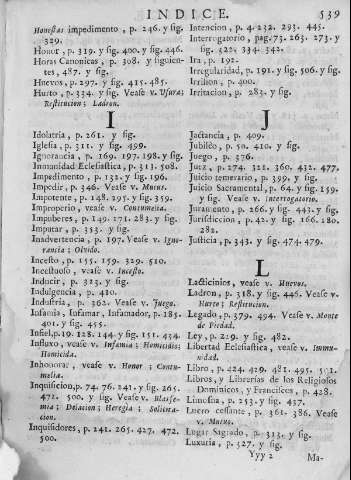 INDICE. 539
Honestas impedimento, p. 246. y sig.
329.
Honor, p. 319. y sig. 400. y sig. 446.
Horas Canonicas, p. 308. y siguien-
tes, 487. y sig.
Huevos, p. 297. y sig. 415. 485.
Hurto, p. 334. y sig. Vease v. Usura;
Restitucion; Ladron.
I
Idolatria, p. 261. y sig.
Iglesia, p. 311. y sig. 499.
Ignorancia, p. 169. 197. 198. y sig.
Inmunidad Eclesiastica, p. 313. 508.
Impedimento, p. 132. y sig. 196.
Impedir, p. 346. Vease v. Mutuo.
Impotente, p. 148. 295. y sig. 359.
Improperio, vease v. Contumelia.
Impuberes, p. 149. 171. 283. y sig.
Imputar, p. 353. y sig.
Inadvertencia, p. 197. Vease v. Igno-
rancia; Olvido.
Incesto, p. 155. 159. 329. 510.
Incestuoso, vease v. Incesto.
Inducir, p. 323. y sig.
Indulgencia, p. 410.
Industria, p. 362. Vease v. Juego.
Infamia, Infamar, Infamador, p. 185.
401. y sig. 455.
Infiel, p. 19. 128. 144. y sig. 151. 434.
Influxo, vease v. Infamia; Homicidio;
Homicida.
Inhonorar, vease v. Honor; Contu-
melia.
Inquisicion, p. 74. 76. 241. y sig. 265.
472. 500. y sig. Vease v. Blasfe-
mia; Delacion; Heregia; Solicita-
cion.
Inquisidores, p. 241. 265. 427. 472.
500.
Intencion, p. 4. 232. 293. 445.
Interrogatorio, pag. 73. 263. 273. y
sig. 322. 334. 342.
Ira, p. 192.
Irregularidad, p. 191. y sig. 506. y sig.
Irrision, p. 400.
Irritacion, p. 283. y sig.
J
Jactancia, p. 409.
Jubiléo, p. 50. 410. y sig.
Juego, p. 376.
Juez, p. 274. 321. 360. 432. 477.
Juicio temerario, p. 399. y sig.
Juicio Sacramental, p. 64. y sig. 159.
y sig. Vease v. Interrogatorio.
Juramento, p. 266. y sig. 443. y sig.
Jurisdiccion, p. 42. y sig. 166. 280.
282.
Justicia, p. 343. y sig. 474. 479.
L
Lacticinios, vease v. Huevos.
Ladron, p. 318. y sig. 446. Vease v.
Hurto; Restitucion.
Legado, p. 379. 494. Vease v. Monte
de Piedad.
Ley, p. 219. y sig. 482.
Libertad Eclesiastica, vease v. Inmu-
nidad.
Libro, p. 424. 429. 481. 495. 501.
Libros, y Librerías de los Religiosos
Dominicos, y Franciscos, p. 428.
Limosna, p. 253. y sig. 437.
Lucro cessante, p. 361. 386. Vease
v. Mutuo.
Lugar Sagrado, p. 313. y sig.
Luxuria, p. 327. y sig.
Yyy 2 Ma-